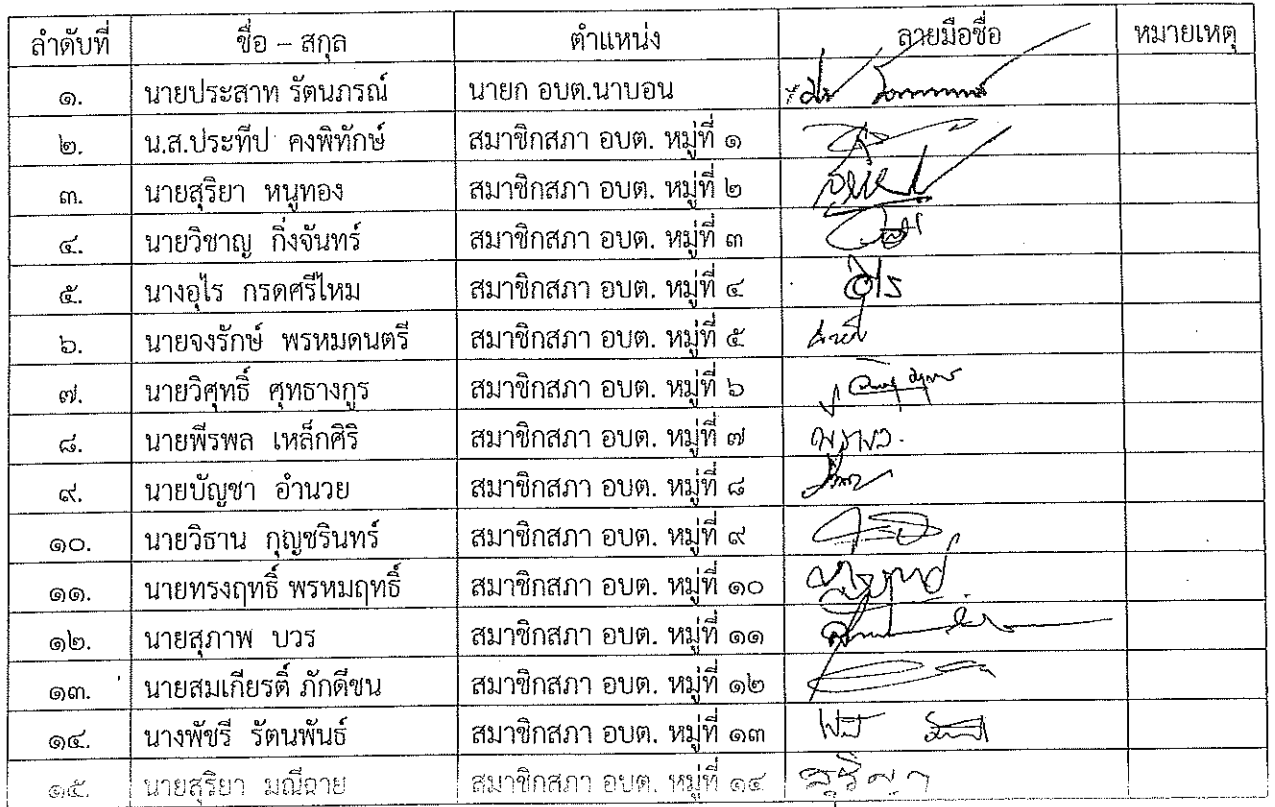 ลำดับที่ ชื่อ – สกุล ตำแหน่ง ลายมือชื่อ หมายเหตุ
๑. นายประสาท รัตนภรณ์ นายก อบต.นาบอน
๒. น.ส.ประทีป คงพิทักษ์ สมาชิกสภา อบต. หมู่ที่ ๑
๓. นายสุริยา หนูทอง สมาชิกสภา อบต. หมู่ที่ ๒
๔. นายวิชาญ กิ่งจันทร์ สมาชิกสภา อบต. หมู่ที่ ๓
๕. นางอุไร กรดศรีไหม สมาชิกสภา อบต. หมู่ที่ ๔ อุไร
๖. นายจงรักษ์ พรหมดนตรี สมาชิกสภา อบต. หมู่ที่ ๕
๗. นายวิศุทธิ์ ศุทธางกูร สมาชิกสภา อบต. หมู่ที่ ๖
๘. นายพีรพล เหล็กศิริ สมาชิกสภา อบต. หมู่ที่ ๗
๙. นายบัญชา อำนวย สมาชิกสภา อบต. หมู่ที่ ๘
๑๐. นายวิธาน กุญชรินทร์ สมาชิกสภา อบต. หมู่ที่ ๙
๑๑. นายทรงฤทธิ์ พรหมฤทธิ์ สมาชิกสภา อบต. หมู่ที่ ๑๐
๑๒. นายสุภาพ บวร สมาชิกสภา อบต. หมู่ที่ ๑๑
๑๓. นายสมเกียรติ์ ภักดีชน สมาชิกสภา อบต. หมู่ที่ ๑๒
๑๔. นางพัชรี รัตนพันธ์ สมาชิกสภา อบต. หมู่ที่ ๑๓
๑๕. นายสุริยา มณีฉาย สมาชิกสภา อบต. หมู่ที่ ๑๔ สุริยา